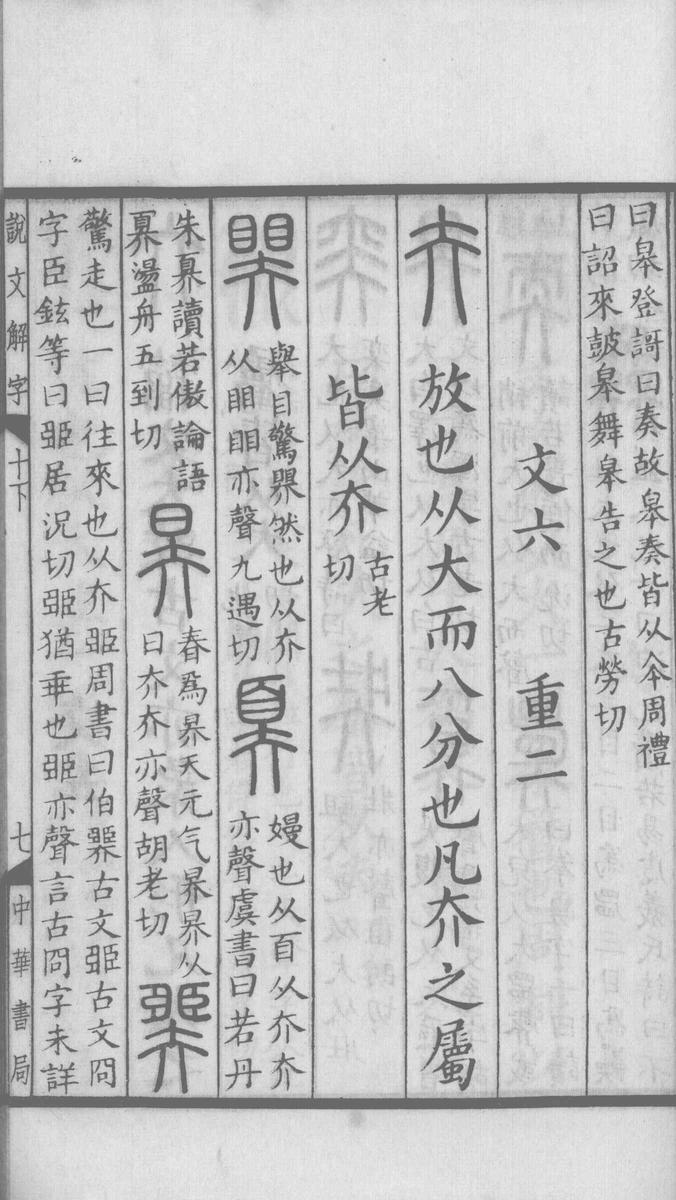 曰皋登謌曰奏故皋奏皆从夲周禮
曰詔來鼓皋舞皋告之也古勞切
文六 重二
夰 放也从大而八分也凡夰之屬
皆从夰 古老
切
舉目驚然也从夰
从䀠䀠亦聲九遇切
奡 嫚也从𦣻从夰夰
亦聲虞書曰若丹
朱奡讀若傲論語
奡盪舟五到切
昦 春爲昦天元气昦昦从
日夰夰亦聲胡老切
臩
驚走也一曰往來也从夰臦周書曰伯臩古文臦古文囧
字臣鉉等曰臦居況切臦猶乖也臦亦聲言古囧字未詳
說文解字 十下 七 中華書局